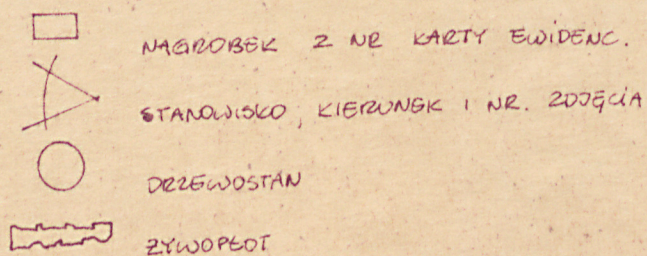 NAGROBEK Z NR KARTY EWIDENC.
STANOWISKO, KIERUNEK I NR. ZDJĘCIA
DRZEWOSTAN
ŻYWOPŁOT